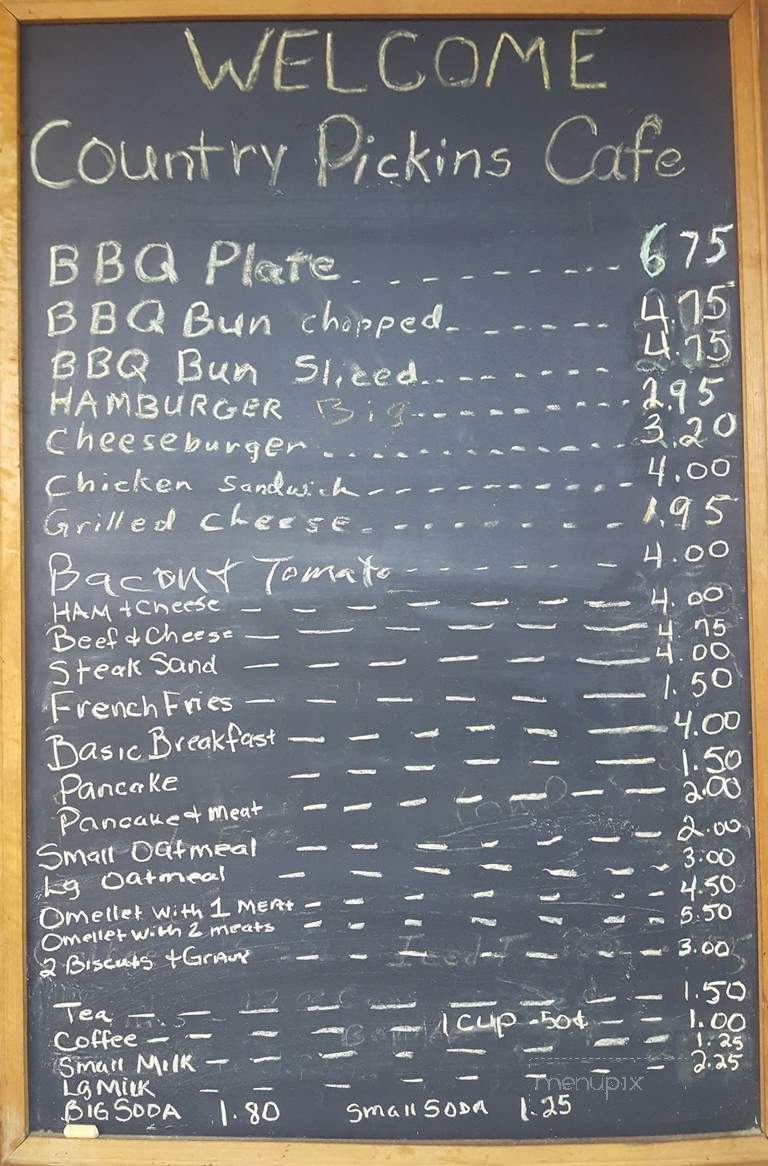 WELCOME
Country Pickins Cafe
BBQ Plate 6 75
BBQ Bun chopped 4.75
BBQ Bun Sliced 4.75
HAMBURGER Big 2.95
Cheeseburger 3.20
Chicken Sandwich 4.00
Grilled cheese 1.95
Bacon + Tomato 4.00
HAM + Cheese 4.00
Beef + Cheese 4 75
Steak Sand 4.00
French Fries 1.50
Basic Breakfast 4.00
Pancake 1.50
Pancake + meat 2.00
Small Oatmeal 2.00
Lg Oatmeal 3.00
Omellet with 1 MEAt 4.50
Omellet with 2 meats 5.50
2 Biscuts + Gravy 3.00
Tea 1.50
Coffee 1 cup .50¢ 1.00
Small Milk 1.25
Lg Milk 2.25
BIG SODA 1.80 Small SODA 1.25
menupix